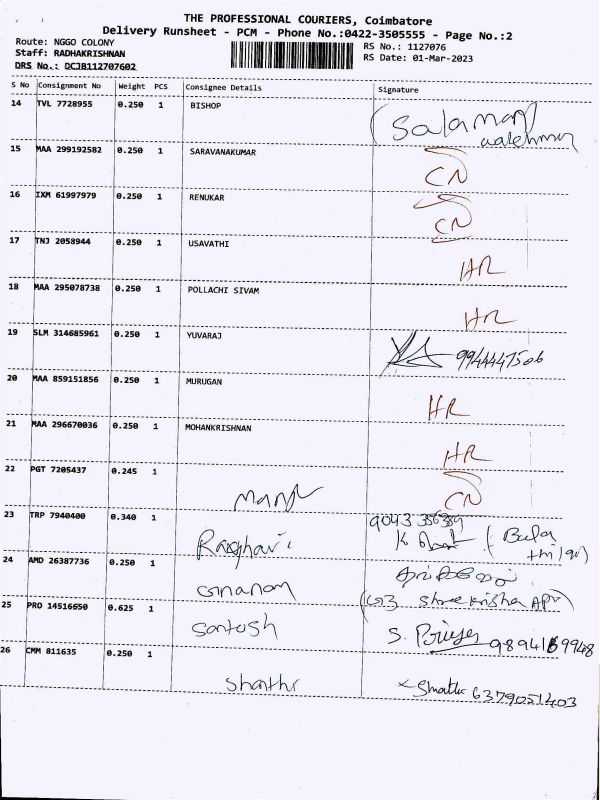 THE PROFESSIONAL COURIERS, Coimbatore
Delivery Runsheet - PCM - Phone No.:0422-3505555 - Page No.:2
Route: NGGO COLONY
RS No.: 1127076
Staff: RADHAKRISHNAN
RS Date: 01-Mar-2023
DRS No.: DCJB112707602
S No Consignment No Weight PCS Consignee Details Signature
14 TVL 7728955 0.250 1 BISHOP
Salaman
watchman
15 MAA 299192582 0.250 1 SARAVANAKUMAR
CN
16 IXM 61997979 0.250 1 RENUKAR
CN
17 TNJ 2058944 0.250 1 USAVATHI
HR
18 MAA 295078738 0.250 1 POLLACHI SIVAM
HR
19 SLM 314685961 0.250 1 YUVARAJ
9944447506
20 MAA 859151856 0.250 1 MURUGAN
HR
21 MAA 296670036 0.250 1 MOHANKRISHNAN
HR
22 PGT 7205437 0.245 1
CN
23 TRP 7940400 0.340 1
Raghavi
24 AMD 26387736 0.250 1
Gnanam
Shree krisha Apt
25 PRO 14516650 0.625 1
Santosh S. Priya
26 CMM 811635 0.250 1
Shanthi 6379051403